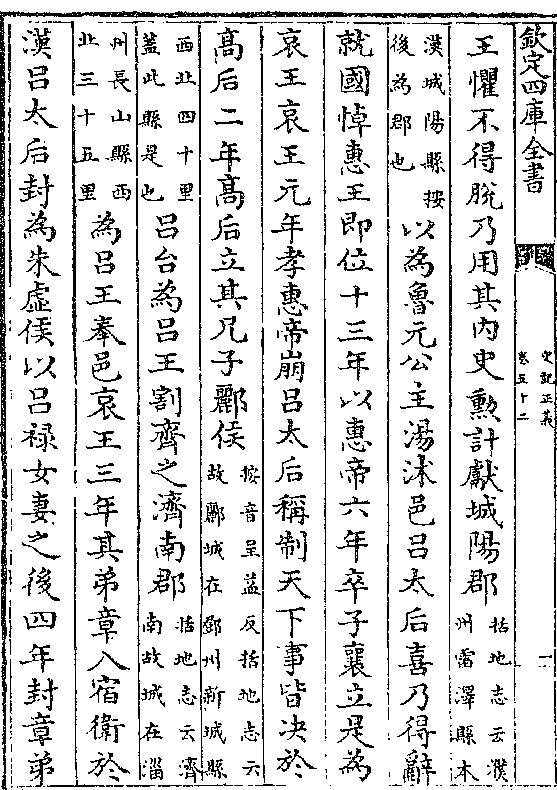 欽定四庫全書
史記正義
卷五十二
一
王懼不得脫乃用其內史勲計獻城陽郡括地志云濮州雷澤縣本
漢城陽縣按後為郡也以為魯元公主湯沐邑吕太后喜乃得辭
就國悼惠王即位十三年以惠帝六年卒子襄立是為
哀王哀王元年孝惠帝崩吕太后稱制天下事皆决於
髙后二年髙后立其兄子酈侯按音呈益反括地志云故酈城在鄧州新城縣
西北四十里蓋此縣是也吕台為吕王割齊之濟南郡括地志云濟南故城在淄
州長山縣西北三十五里為吕王奉邑哀王三年其弟章入宿衛於
漢吕太后封為朱虚侯以吕禄女妻之後四年封章弟